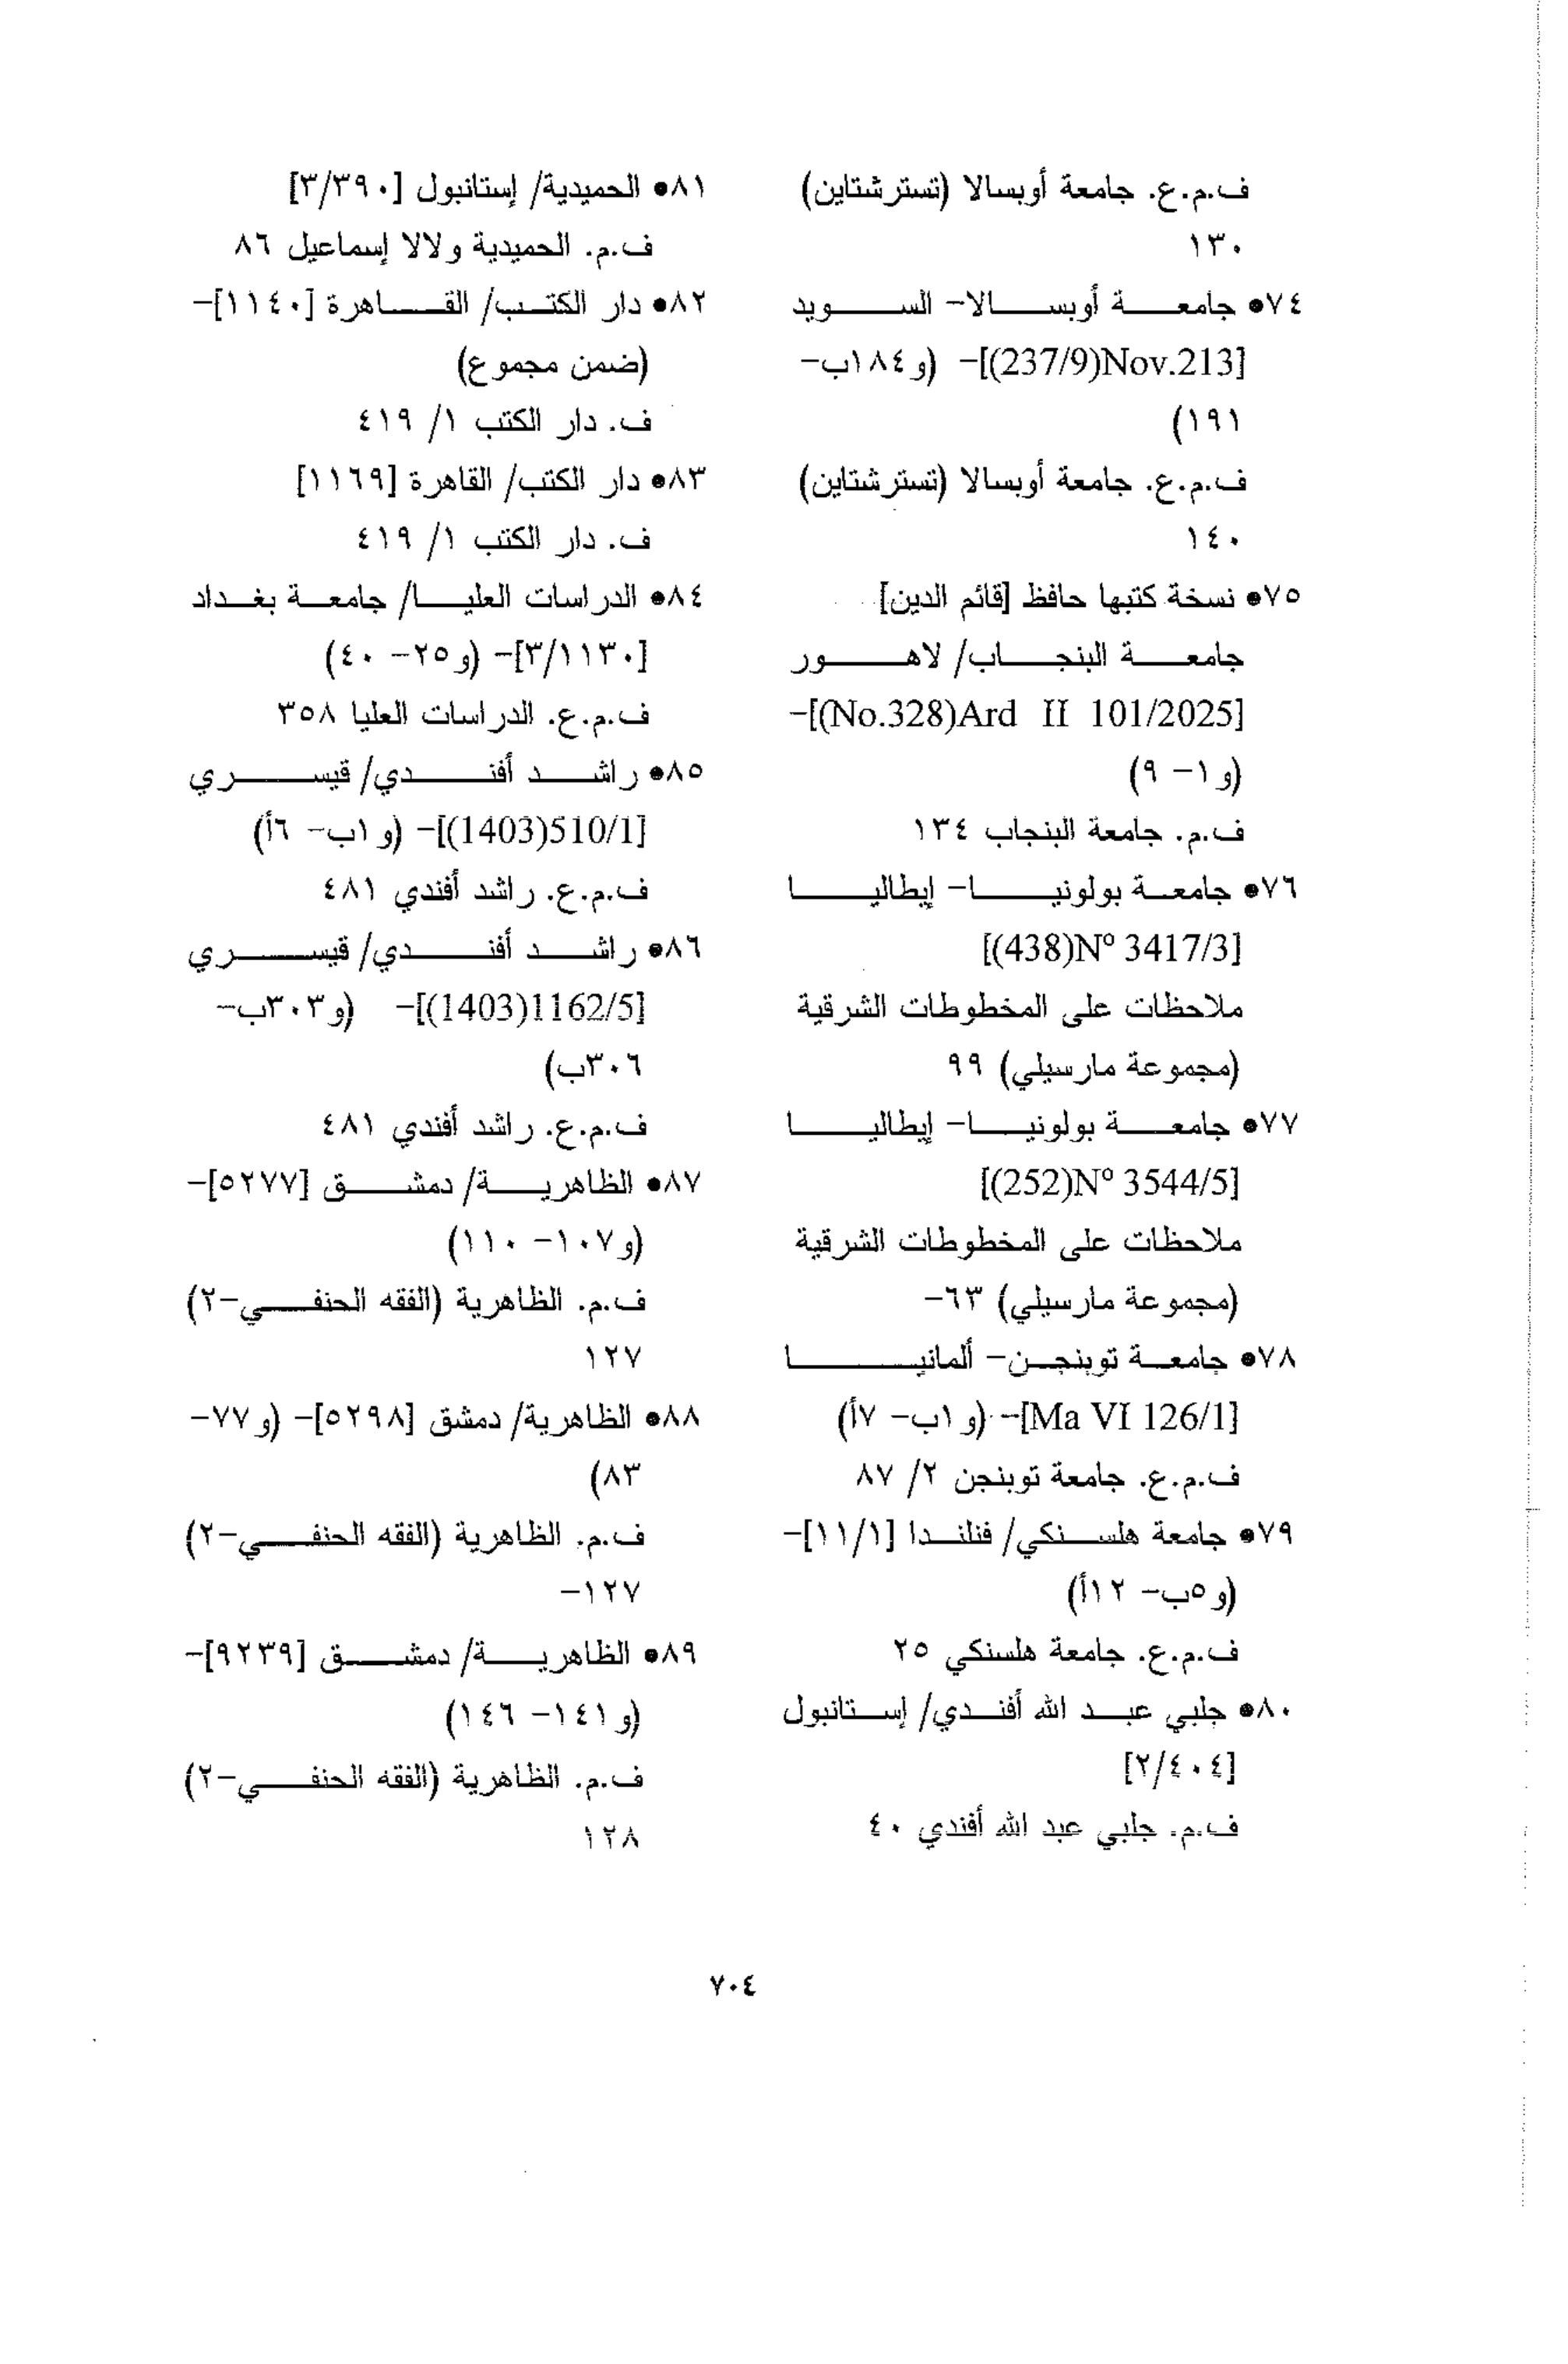 ف.م.ع. جامعة أوبسالا (تسترشتاين)
١٣٠
٧٤● جامعة أوبسالا- السويد
[Nov.213(237/9)]- (و١٨٤ب-
١٩١)
ف.م.ع. جامعة أوبسالا (تسترشتاين)
١٤٠
٧٥● نسخة كتبها حافظ [قائم الدين]
جامعة البنجاب/ لاهور
[Ard II 101/2025(No.328)]-
(و١- ٩)
ف.م. جامعة البنجاب ١٣٤
٧٦● جامعة بولونيا- إيطاليا
[Nº 3417/3(438)]
ملاحظات على المخطوطات الشرقية
(مجموعة مارسيلي) ٩٩
٧٧● جامعة بولونيا- إيطاليا
[Nº 3544/5(252)]
ملاحظات على المخطوطات الشرقية
(مجموعة مارسيلي) ٦٣-
٧٨● جامعة توبنجن- ألمانيا
[Ma VI 126/1]- (و١ب- ٧أ)
ف.م.ع. جامعة توبنجن ٢/ ٨٧
٧٩● جامعة هلسنكي/ فنلندا [١١/١]-
(و٥ب- ١٢أ)
ف.م.ع. جامعة هلسنكي ٢٥
٨٠● جلبي عبد الله أفندي/ إستانبول
[٢/٤٠٤]
ف.م. جلبي عبد الله أفندي ٤٠
٨١● الحميدية/ إستانبول [٣/٣٩٠]
ف.م. الحميدية ولالا إسماعيل ٨٦
٨٢● دار الكتب/ القاهرة [١١٤٠]-
(ضمن مجموع)
ف. دار الكتب ١/ ٤١٩
٨٣● دار الكتب/ القاهرة [١١٦٩]
ف. دار الكتب ١/ ٤١٩
٨٤● الدراسات العليا/ جامعة بغداد
[٣/١١٣٠]- (و٢٥- ٤٠)
ف.م.ع. الدراسات العليا ٣٥٨
٨٥● راشد أفندي/ قيسري
[510/1(1403)]- (و١ب- ٦أ)
ف.م.ع. راشد أفندي ٤٨١
٨٦● راشد أفندي/ قيسري
[1162/5(1403)]- (و٣٠٣ب-
٣٠٦ب)
ف.م.ع. راشد أفندي ٤٨١
٨٧● الظاهرية/ دمشق [٥٢٧٧]-
(و١٠٧- ١١٠)
ف.م. الظاهرية (الفقه الحنفي-٢)
١٢٧
٨٨● الظاهرية/ دمشق [٥٢٩٨]- (و٧٧-
٨٣)
ف.م. الظاهرية (الفقه الحنفي-٢)
١٢٧-
٨٩● الظاهرية/ دمشق [٩٢٣٩]-
(و١٤١- ١٤٦)
ف.م. الظاهرية (الفقه الحنفي-٢)
١٢٨
٧٠٤